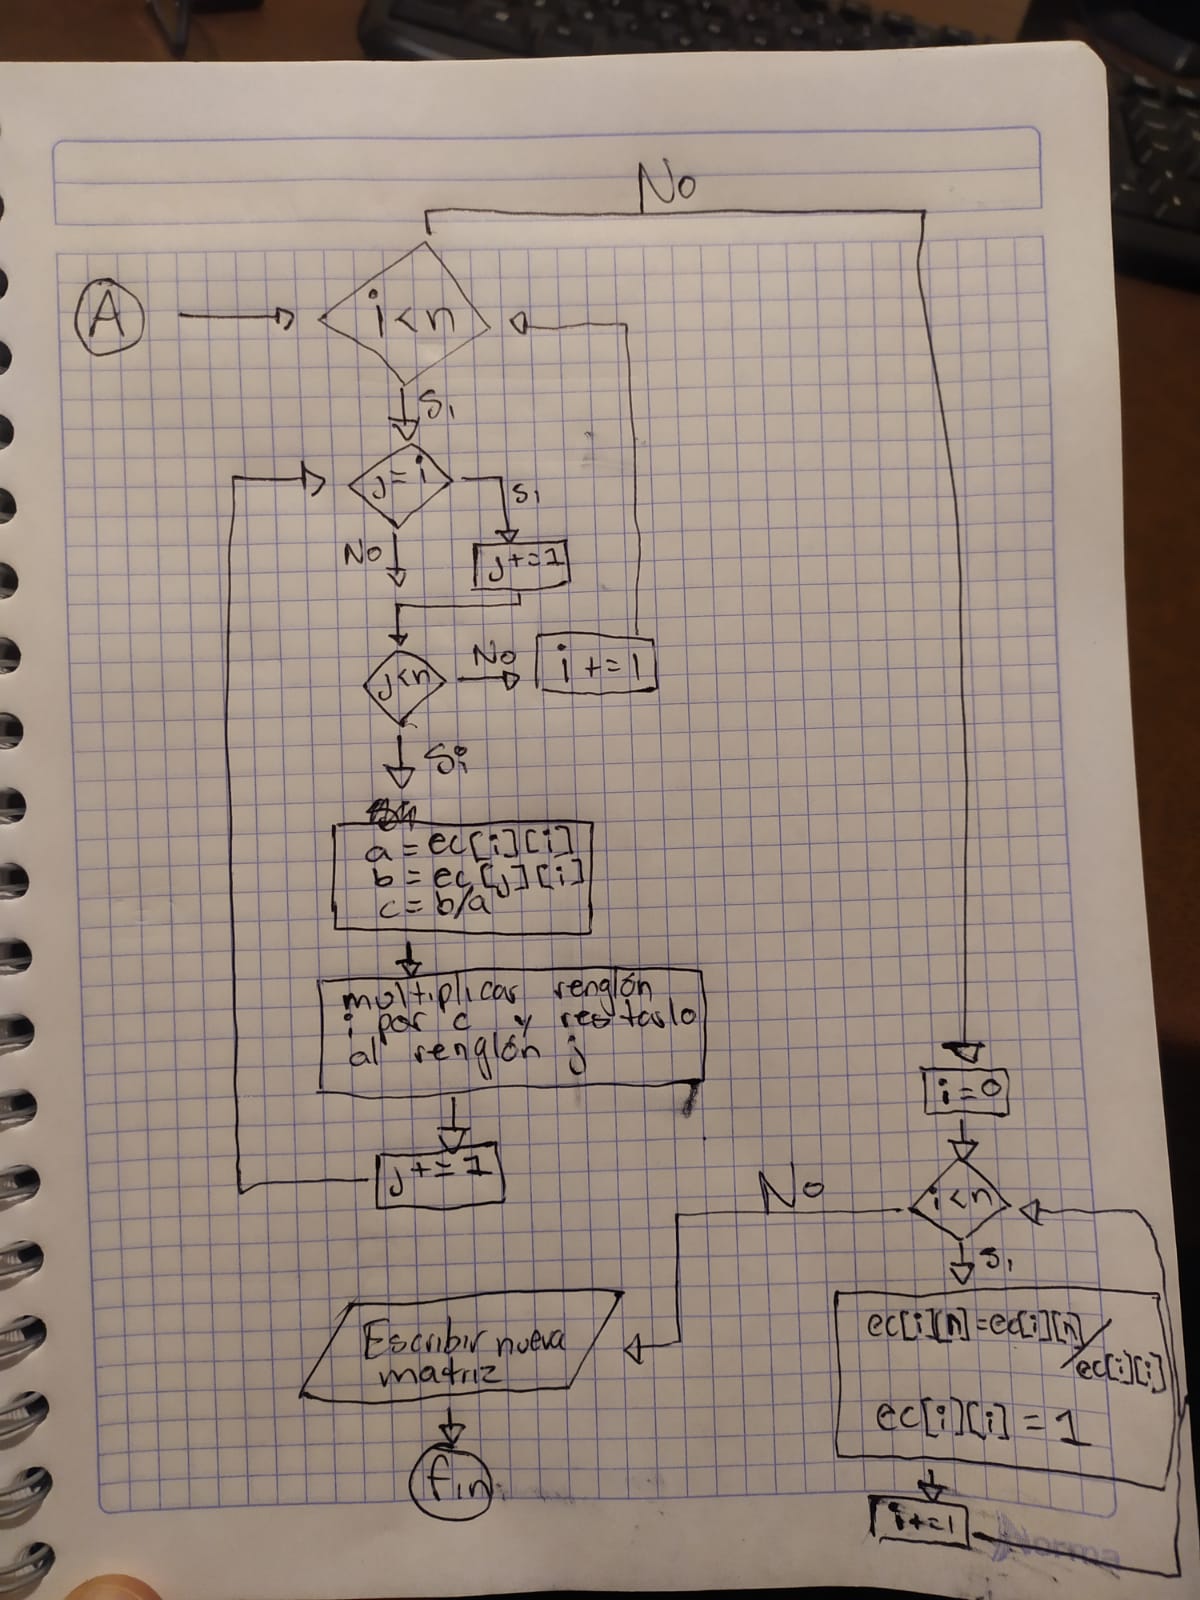 No
A
i<n
Si
j=i
Si
No
j+=1
j<n
No
i+=1
Si
a=ec[i][i]
b=ec[j][i]
c=b/a
multiplicar renglón
i por c y restarlo
al renglón j
j+=1
i=0
i<n
No
Si
ec[i][n]=ec[i][n]/
ec[i][i]
ec[i][i]=1
i+=1
Escribir nueva
matriz
fin
Norma